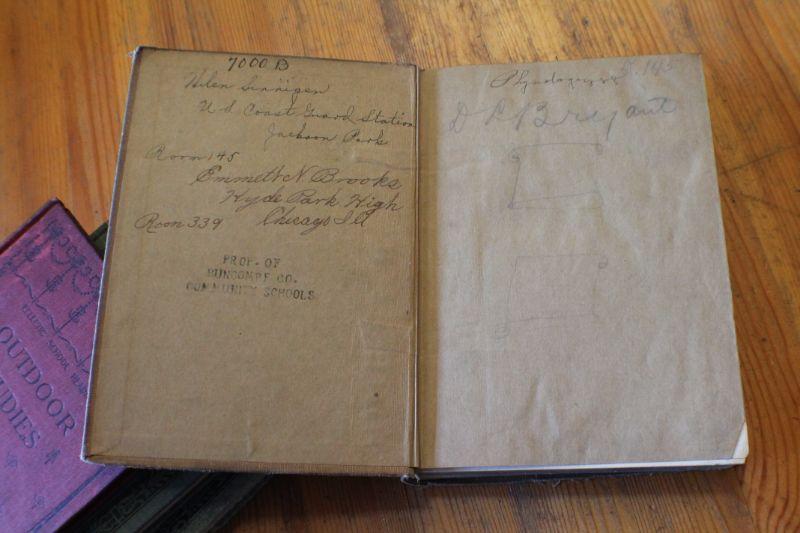 7000 B
Helen Sinnigen
U S Coast Guard Station
Jackson Park
Room 145
Emmett N Brooks
Hyde Park High
Room 339 Chicago Ill
PROP. OF
BUNCOMBE CO.
COMMUNITY SCHOOLS
145
D L Bryant
SCHOOL
OUTDOOR